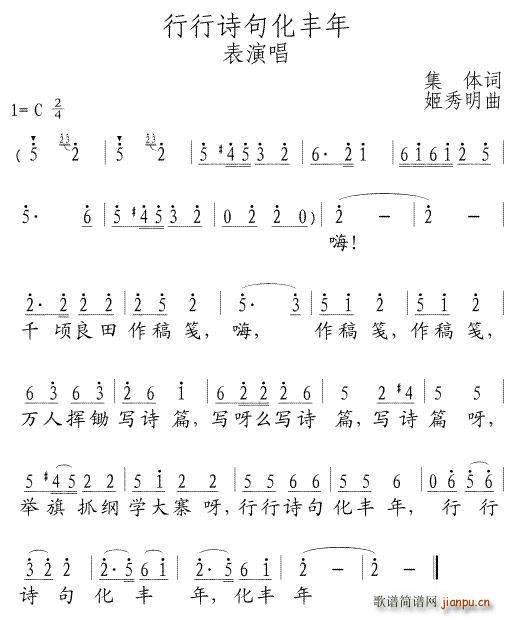 行行诗句化丰年
表演唱
集 体词
姬秀明曲
1= C 2/4
( 5 2 5 2 | 5 #4 5 3 2 | 6· 2 1 | 6 1 6 1 2 5 |
5· 6 | 5 #4 5 3 2 | 0 2 2 0 ) | 2 – | 2 – |
嗨!
2· 2 2 2 2 | 2 5 1 2 | 5· 3 | 5 1 2 | 2 5 1 2 |
千 顷良田 作稿笺, 嗨, 作稿笺, 作稿笺,
6 3 6 3 | 2 6 1 | 6 2 2 2 6 | 5 5 | 2 #4 5 5 |
万人挥锄 写诗篇, 写呀么写诗 篇, 写诗篇 呀,
5 #4 5 2 2 | 5 1 2 2 | 2· 5 6 1 | 5 5 6 | 0 6 5 6 |
举旗 抓纲 学大寨呀, 行行诗句 化丰年, 行 行
3 2 2 | 2· 5 6 1 | 2· 5 6 1 | 2 – | 2 – ‖
诗 句 化 丰 年, 化丰 年
歌谱简谱网
jianpu.cn